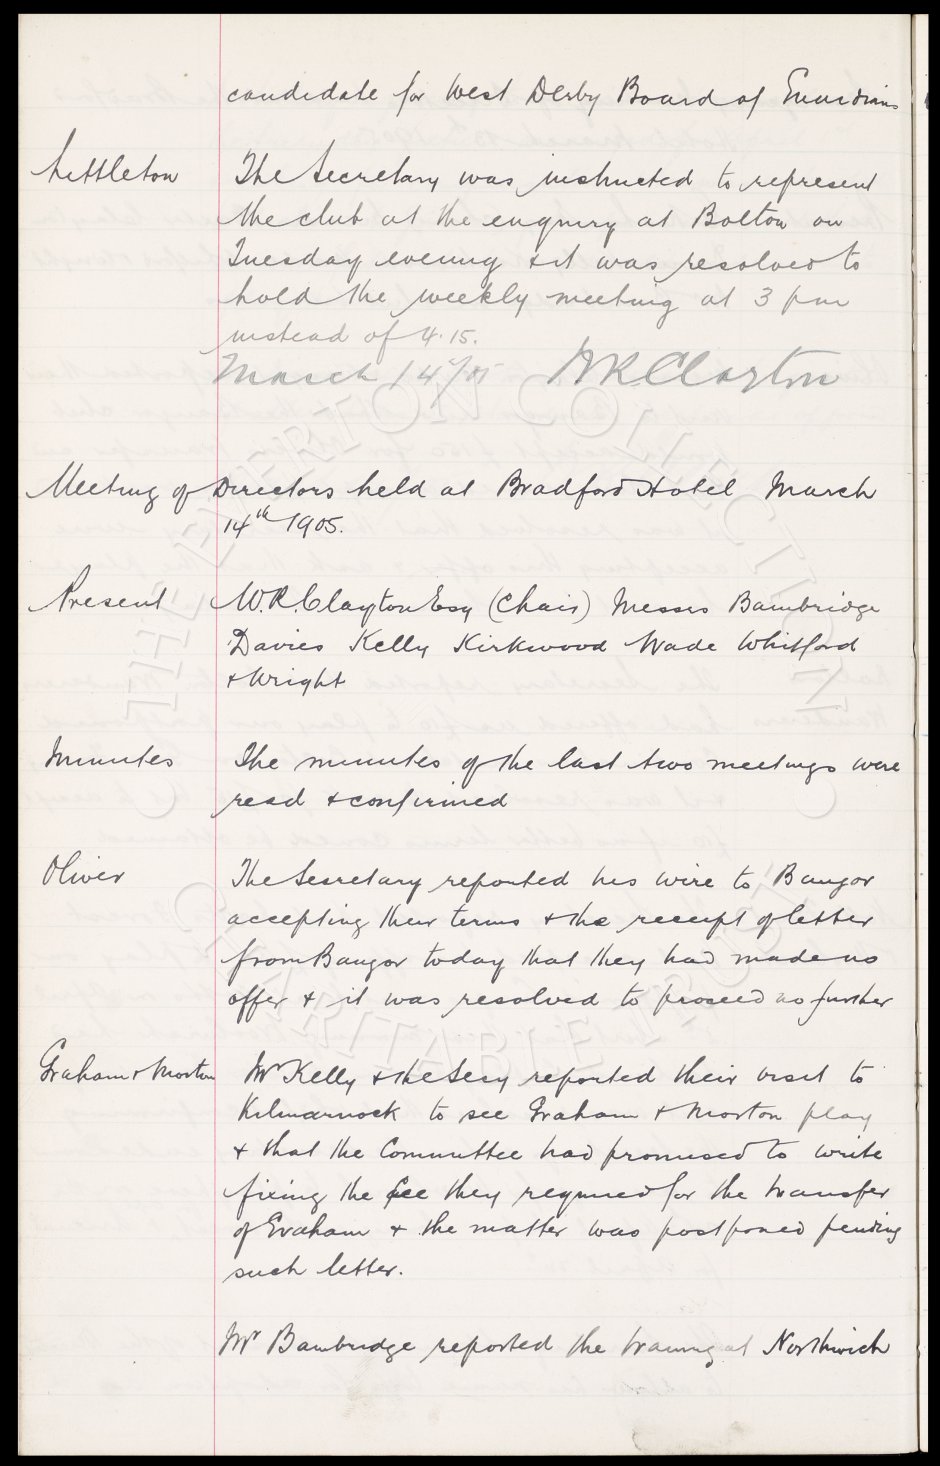 candidate for West Derby Board of Guardians
Lettleton The Secretary was instructed to represent
the club at the enquiry at Bolton on
Tuesday evening & it was resolved to
hold the weekly meeting at 3 pm
instead of 4.15.
March 14/05 WRClayton
Meeting of Directors held at Bradford Hotel March
14th 1905.
Present W.R. Clayton Esq (Chair) Messrs Bainbridge
Davies Kelly Kirkwood Wade Whitford
& Wright
Minutes The minutes of the last two meetings were
read & confirmed
Oliver The Secretary reported his wire to Bangor
accepting their terms & the receipt of letter
from Bangor today that they had made no
offer & it was resolved to proceed no further
Graham & Morton Mr Kelly & the Secy reported their visit to
Kilmarnock to see Graham & Morton play
& that the Committee had promised to write
fixing the fee they required for the transfer
of Graham & the matter was postponed pending
such letter.
Mr Bainbridge reported the training at Northwich
THE EVERTON COLLECTION
CHARITABLE TRUST